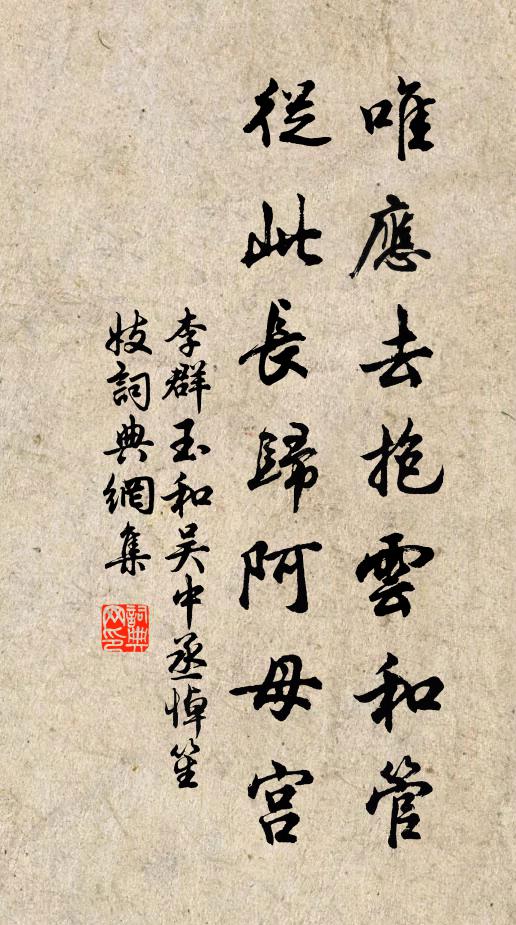 唯應去抱雲和管
從此長歸阿母宮
李群玉和吴中丞悼笙
妓詞典網集
詞典网印